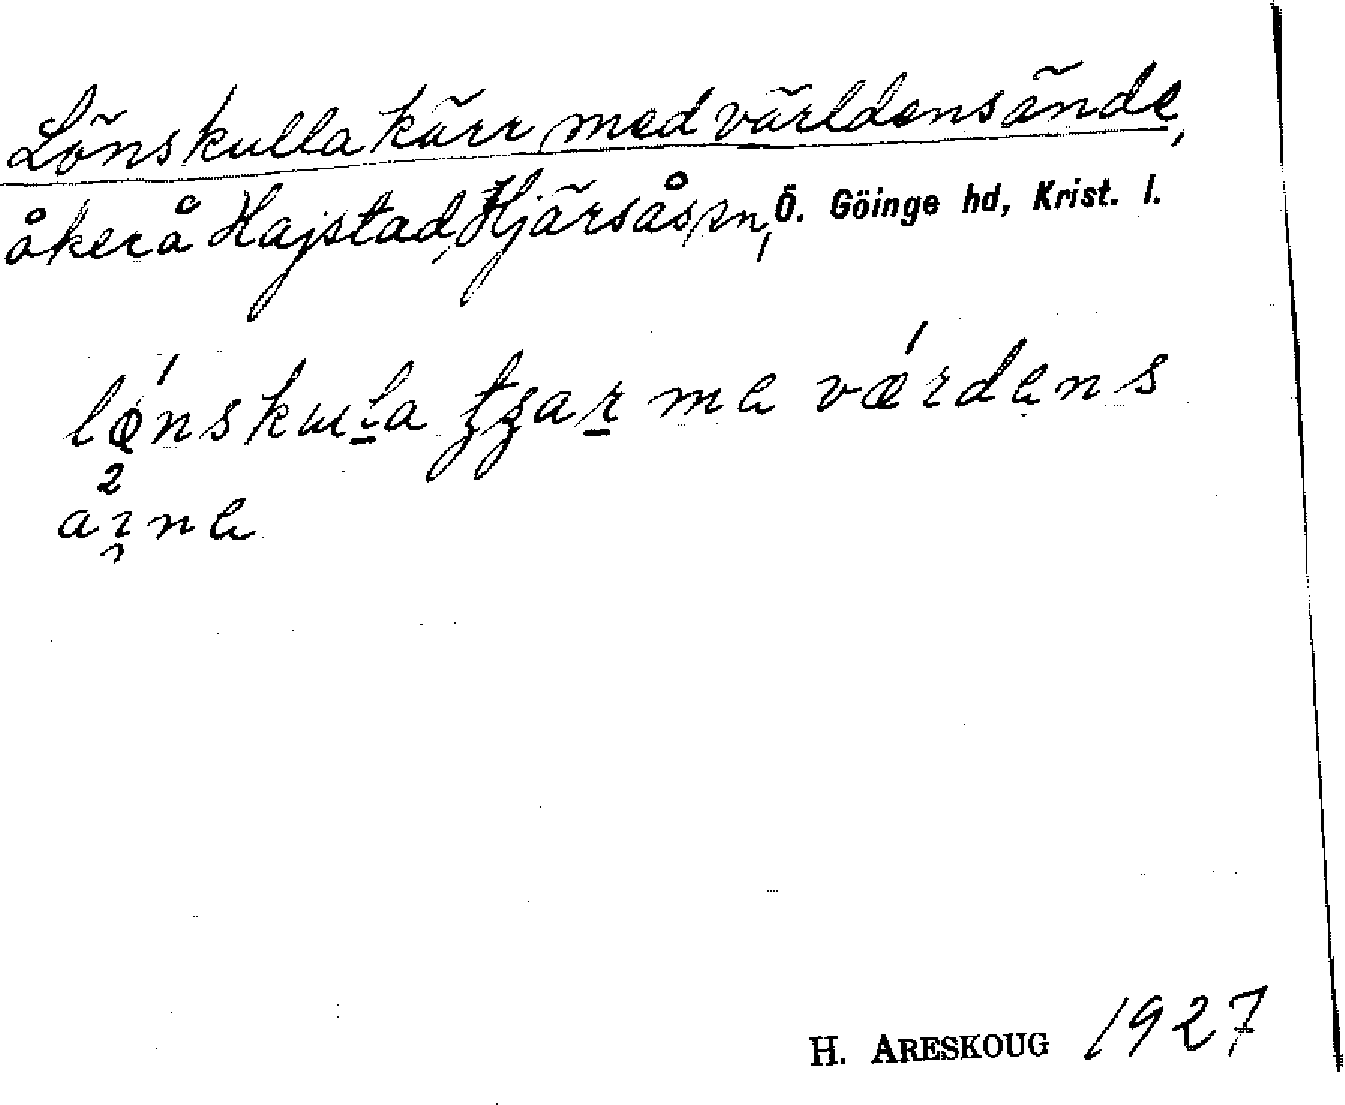 Lönskulla kärr med världens ände,
åker å Hajstad, Hjärsås sn, Ö. Göinge hd, Krist. l.
lǿnskuḻa tʒaṟ me vǽrdens
a²i̯ne
H. ARESKOUG 1927